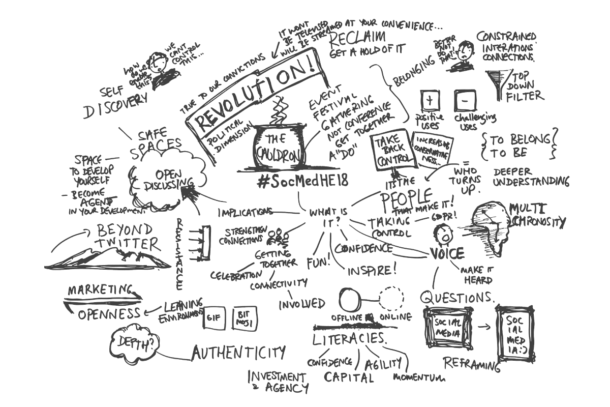 WE CAN'T CONTROL THIS...
HOW DARE
SELF
DISCOVERY
TRUE TO OUR CONVICTIONS
REVOLUTION!
POLITICAL DIMENSION
IT WONT
BE TELEVISED
WILL BE STREAMED AT YOUR CONVENIENCE...
RECLAIM
GET A HOLD OF IT
BELONGING
BETTER NOT DO THAT!
CONSTRAINED
INTERATIONS
CONNECTIONS.
TOP
DOWN
FILTER
+
positive
uses
-
challenging
uses
SAFE
SPACES
SPACE
TO DEVELOP
YOURSELF
- BECOME
AGENT
IN YOUR DEVELOPMENT
OPEN
DISCUSSING
THE
CAULDRON
#SocMedHE18
EVENT
FESTIVAL
GATHERING
NOT CONFERENCE
GET TOGETHER
A "DO"
TAKE
BACK
CONTROL
INCREASE
WHO
TURNS
UP.
TO BELONG
TO BE
DEEPER
UNDERSTANDING
IT'S THE
PEOPLE
THAT MAKE IT!
TAKING
CONTROL
GDPR!
VOICE
MAKE IT
HEARD
MULTI
CHRONOSITY
IMPLICATIONS
WHAT IS
IT?
BEYOND
TWITTER
RESISTANCE
STRENGTHEN
CONNECTIONS
GETTING
TOGETHER
CELEBRATION
CONNECTIVITY
INVOLVED
FUN!
CONFIDENCE
INSPIRE!
MARKETING
OPENNESS
LEARNING
ENVIRONMENT
GIF
BIT
MOJI
DEPTH?
AUTHENTICITY
OFFLINE
ONLINE
LITERACIES.
CONFIDENCE
AGILITY
CAPITAL
MOMENTUM
INVESTMENT
AGENCY
QUESTIONS.
SOCIAL
MEDIA
SOC
IAL
MED
IA:)
REFRAMING